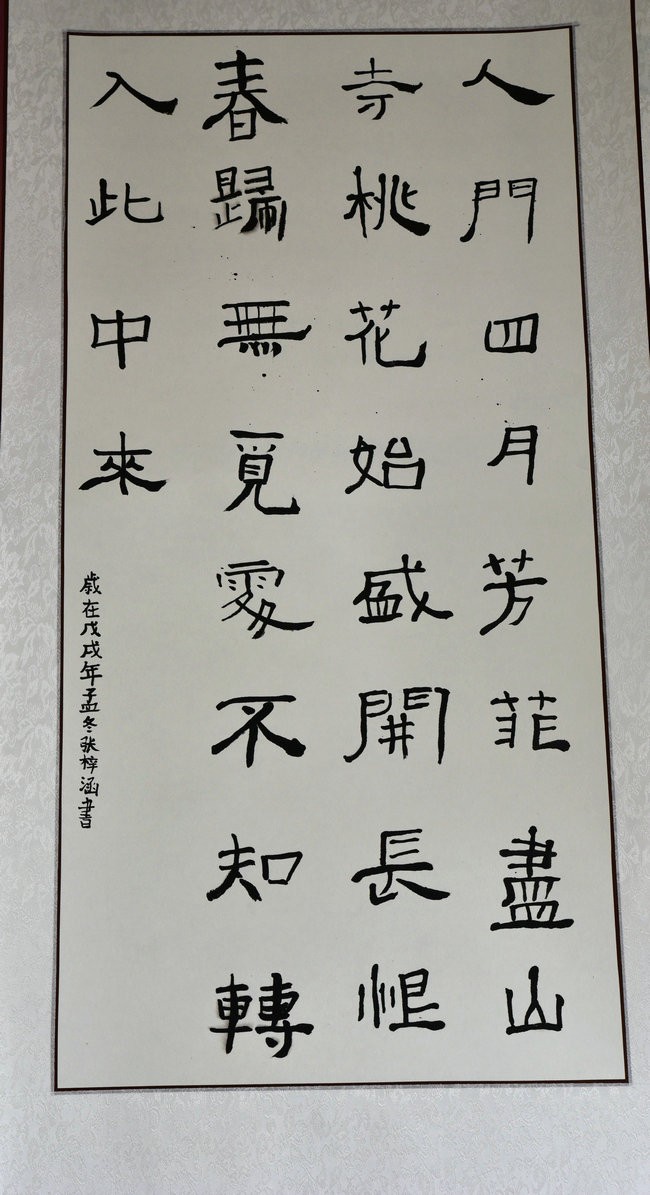 人門四月芳菲盡山
寺桃花始盛開長恨
春歸無覓處不知轉
入此中來
歲在戊戌年孟冬张梓涵書